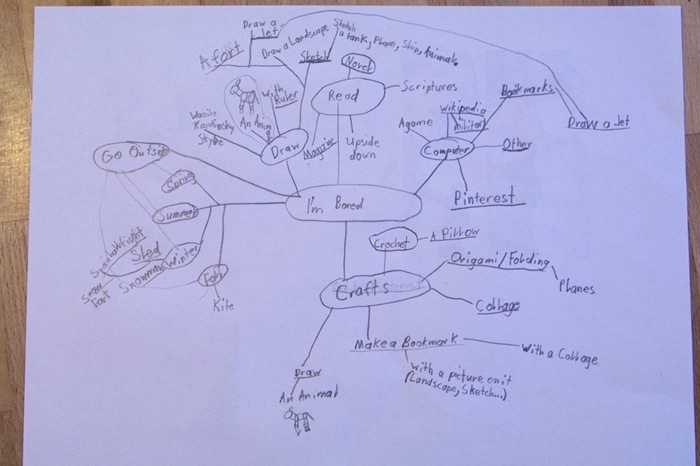 Draw a
Jet
Sketch
a tank, Plane, Ship, Animal.
Draw a Landscape
A fort
Sketch
Novel
Read
Scriptures
Bookmarks
Wikipedia
Military
With
Ruler
An Animal
Draw a Jet
Agame
Wassily
Kandinsky
Style
Draw
Upside
down
Computer
Other
Go Outside
Spring
Pinterest
I'm Bored
Summer
Crochet
A Pillow
Snowball Fight
Sled
Winter
Snowman
Snow
Fort
Fall
Kite
Origami/Folding
Planes
Crafts
Collage
Make a Bookmark
With a Collage
With a picture on it
(Landscape, Sketch...)
Draw
An Animal